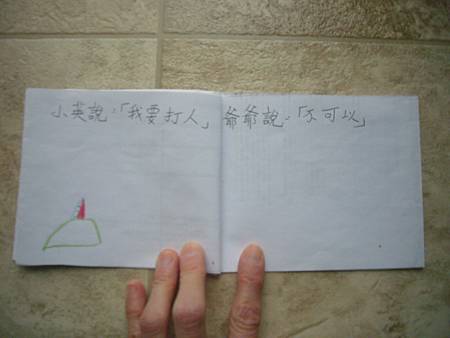 小英說：「我要打人」
爺爺說：「不可以」